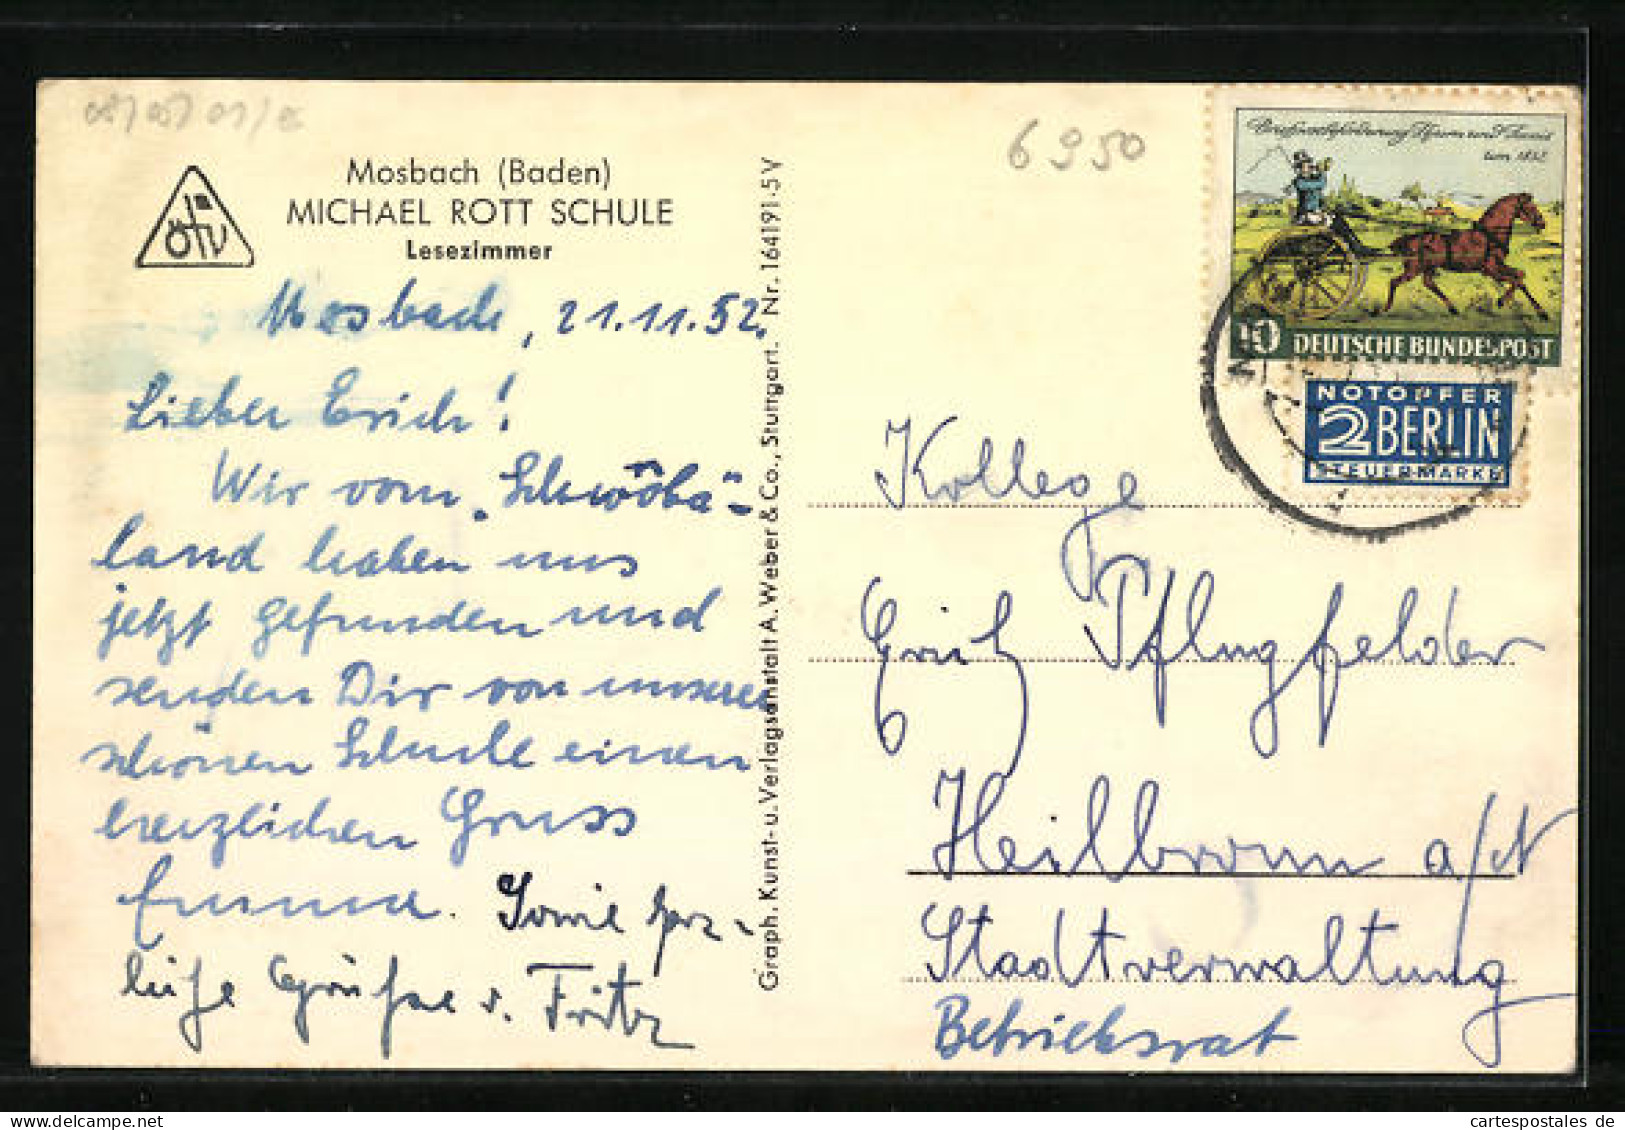 6950
Mosbach (Baden)
MICHAEL ROTT SCHULE
Lesezimmer
ötv
Mosbach, 21.11.52.
Lieber Erich!
Wir vom "Schwöba"-
land haben uns
jetzt gefunden und
senden Dir von unserer
schönen Schule einen
herzlichen Gruss
Emma. Sowie herz-
liche Grüße v. Fritz
Graph. Kunst- u. Verlagsanstalt A. Weber & Co., Stuttgart. Nr. 164191.5 V
um 1852
10 DEUTSCHE BUNDESPOST
NOTOPFER
2 BERLIN
STEUERMARKE
Kollege
Erich Pflugfelder
Heilbronn a/N
Stadtverwaltung
Betriebsrat
cartespostales de